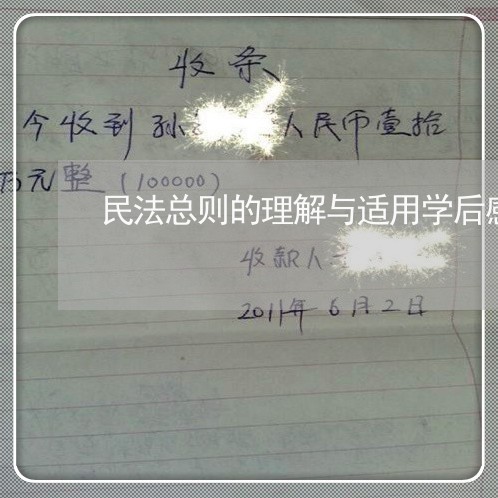 收条
今收到孙 人民币壹拾
万元整（100000）
民法总则的理解与适用学后感
收款人
2011年6月2日